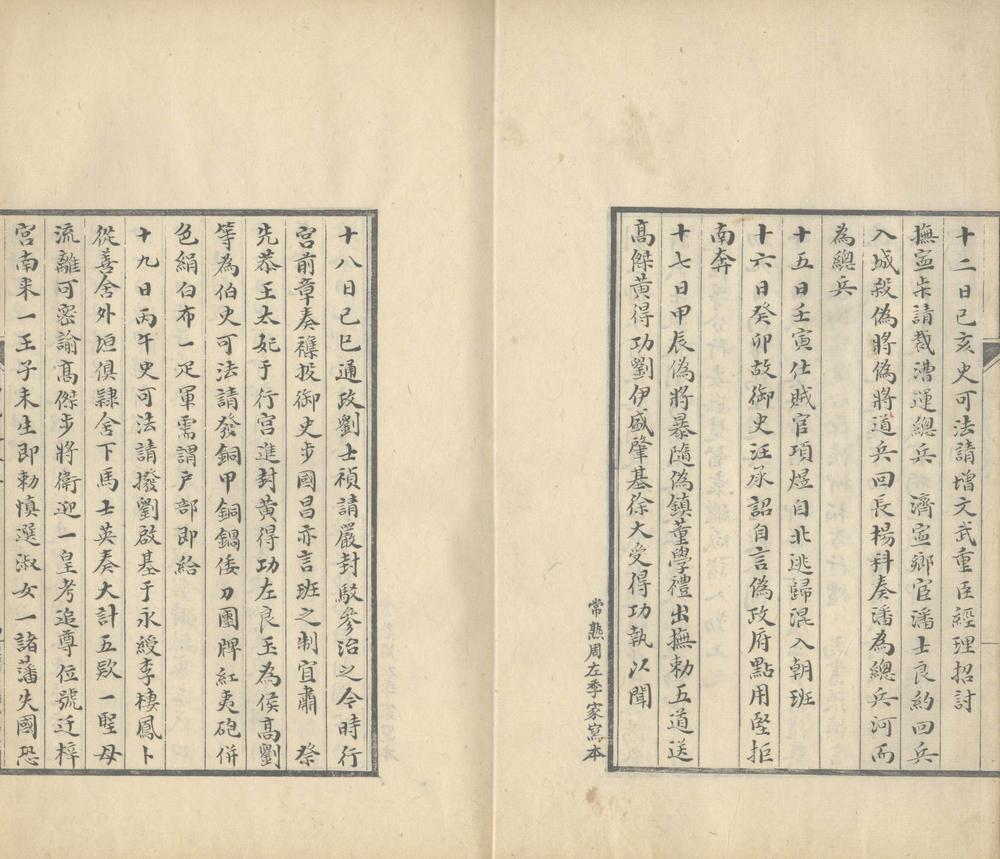 十二日已亥史可法請增文武重臣經理招討
撫寍宋請裁漕運總兵 濟寍鄉官潘士良約回兵
入城殺偽將偽將道兵回長楊科奏潘為總兵河而
為總兵
十五日壬寅仕賊官項煜自北逃歸混入朝班
十六日癸卯故御史汪承詔自言偽政府點用堅拒
南奔
十七日甲辰偽將暴隨偽鎮董學禮出撫勅五道送
高傑黄得功劉伊盛肇基徐大受得功執以聞
常熟周左季家寫本
十八日已巳通政劉士禎請嚴封駁參治之令時行
宮前章奏襍投御史步國昌亦言班之制宜肅 祭
先恭王太妃于行宮進封黄得功左良玉為侯高劉
等為伯史可法請發銅甲銅鍋倭刀團牌紅夷砲併
色絹白布一疋軍需謂户部即給
十九日丙午史可法請撥劉啟基于永綬李棲鳳卜
從善舍外垣俱隷舍下馬士英奏大計五欵一聖母
流離可密諭高傑步將衛迎一皇考追尊位號迁梓
宮南来一王子未生即勅慎選淑女一諸藩失國恐